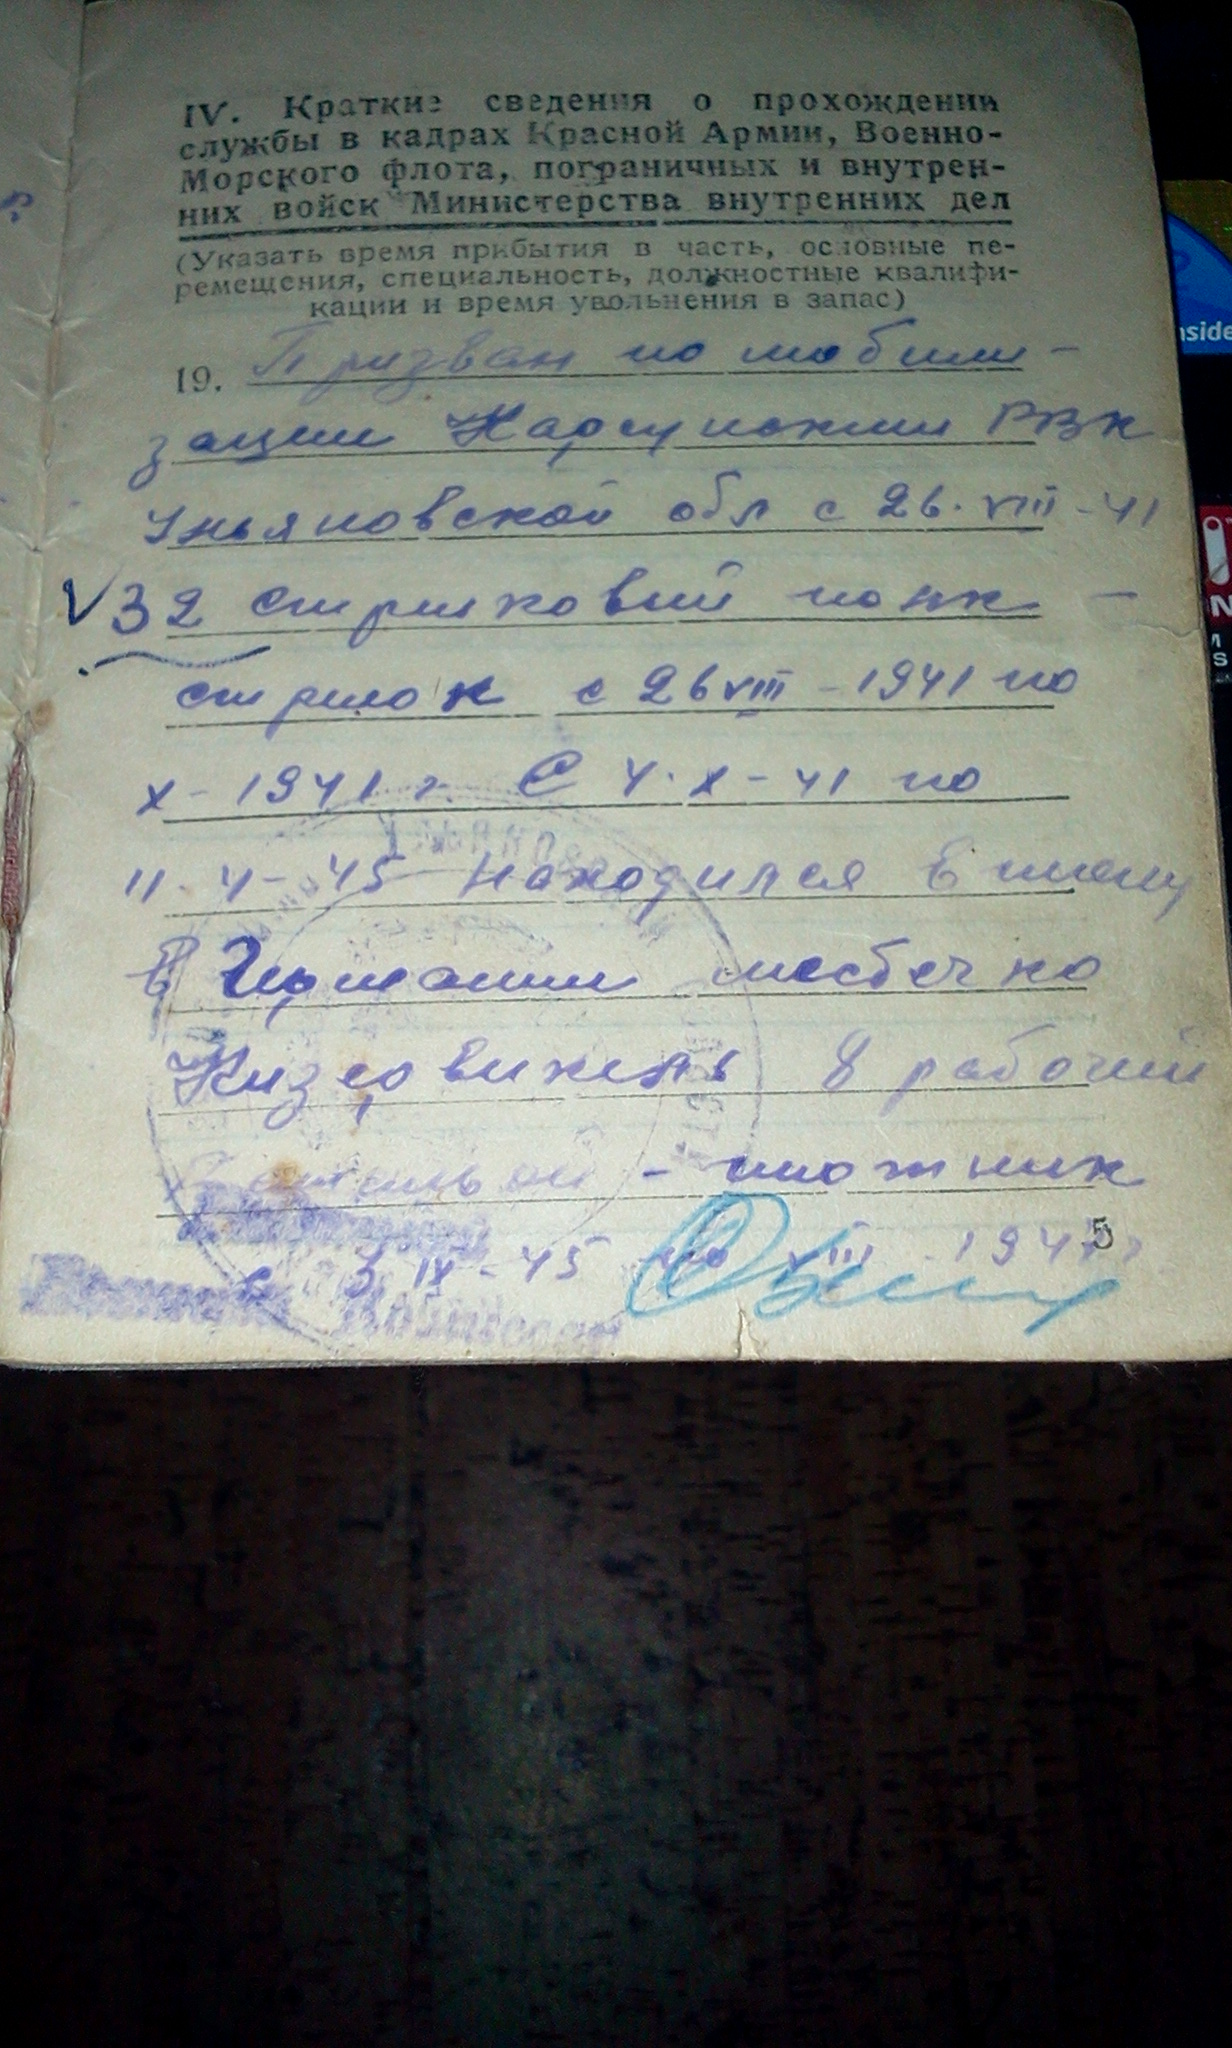 IV. Краткие сведения о прохождении
службы в кадрах Красной Армии, Военно-
Морского флота, пограничных и внутрен-
них войск Министерства внутренних дел
(Указать время прибытия в часть, основные пе-
ремещения, специальность, должностные квалифи-
кации и время увольнения в запас)
19. Призван по мобили-
зации Карсунским РВК
Ульяновской обл с 26. VIII - 41
V 32 стрелковый полк -
стрелок с 26 VIII - 1941 по
X - 1941 г. С 4. X - 41 по
11. 4 - 45 находился в плену
в Германии местечко
в рабочий
батальон - плотник
с 3 IX - 45 по VIII - 194
5
nside